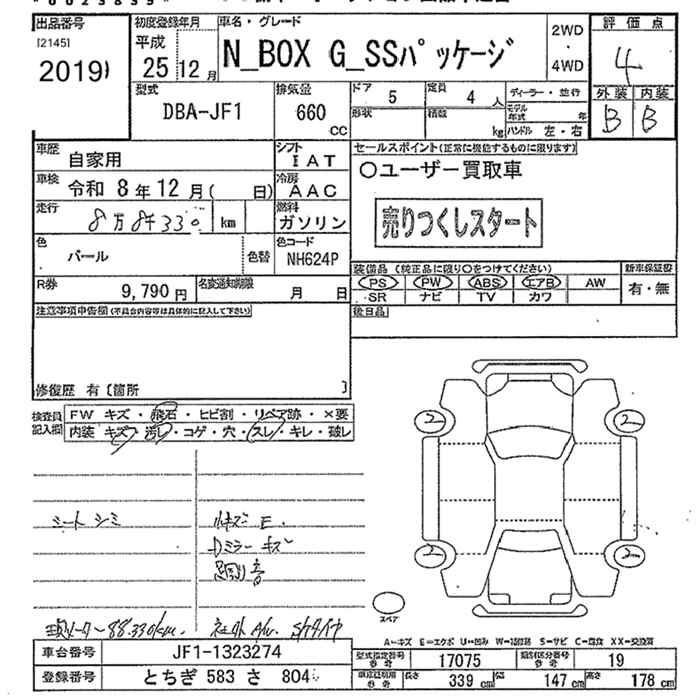 出品番号
[2145]
20191
初度登録年月
平成
25 12 月
車名・グレード
N_BOX G_SSパッケージ
2WD
・
4WD
評価点
4
外装 内装
B B
型式
DBA-JF1
排気量
660
CC
ドア 5
定員 4 人
形状
積載 kg
ディーラー・並行
モデル年式 年
ハンドル 左・右
車歴 自家用
シフト IAT
セールスポイント(正常に機能するものに限ります)
車検 令和 8 年 12 月( 日)
冷房 AAC
○ユーザー買取車
走行 8万8千330 km
燃料 ガソリン
売りつくしスタート
色 パール
色替
色コード NH624P
装備品 (純正品に限り○をつけてください)
新車保証書
PS PW ABS エアB AW
有・無
SR ナビ TV カワ
R券 9,790 円
名変通知期限 月 日
注意事項申告欄(不具合内容等は具体的に記入して下さい)
後日品
修復歴 有 [箇所 ]
検査員記入欄
FW キズ・飛石・ヒビ割・リペア跡・×要
内装 キズ・汚レ・コゲ・穴・スレ・キレ・破レ
2 2
2 2
シートシミ
小キズ E.
Dミラーキズ
現メーター88.330km.
社外A/w.
スペア
A=キズ E=エクボ U=凹み W=補修跡 S=サビ C=腐食 XX=交換済
車台番号 JF1-1323274
型式指定番号 参考 17075
類別区分番号 参考 19
登録番号 とちぎ 583 さ 804
長さ 339 cm 幅 147 cm 高さ 178 cm